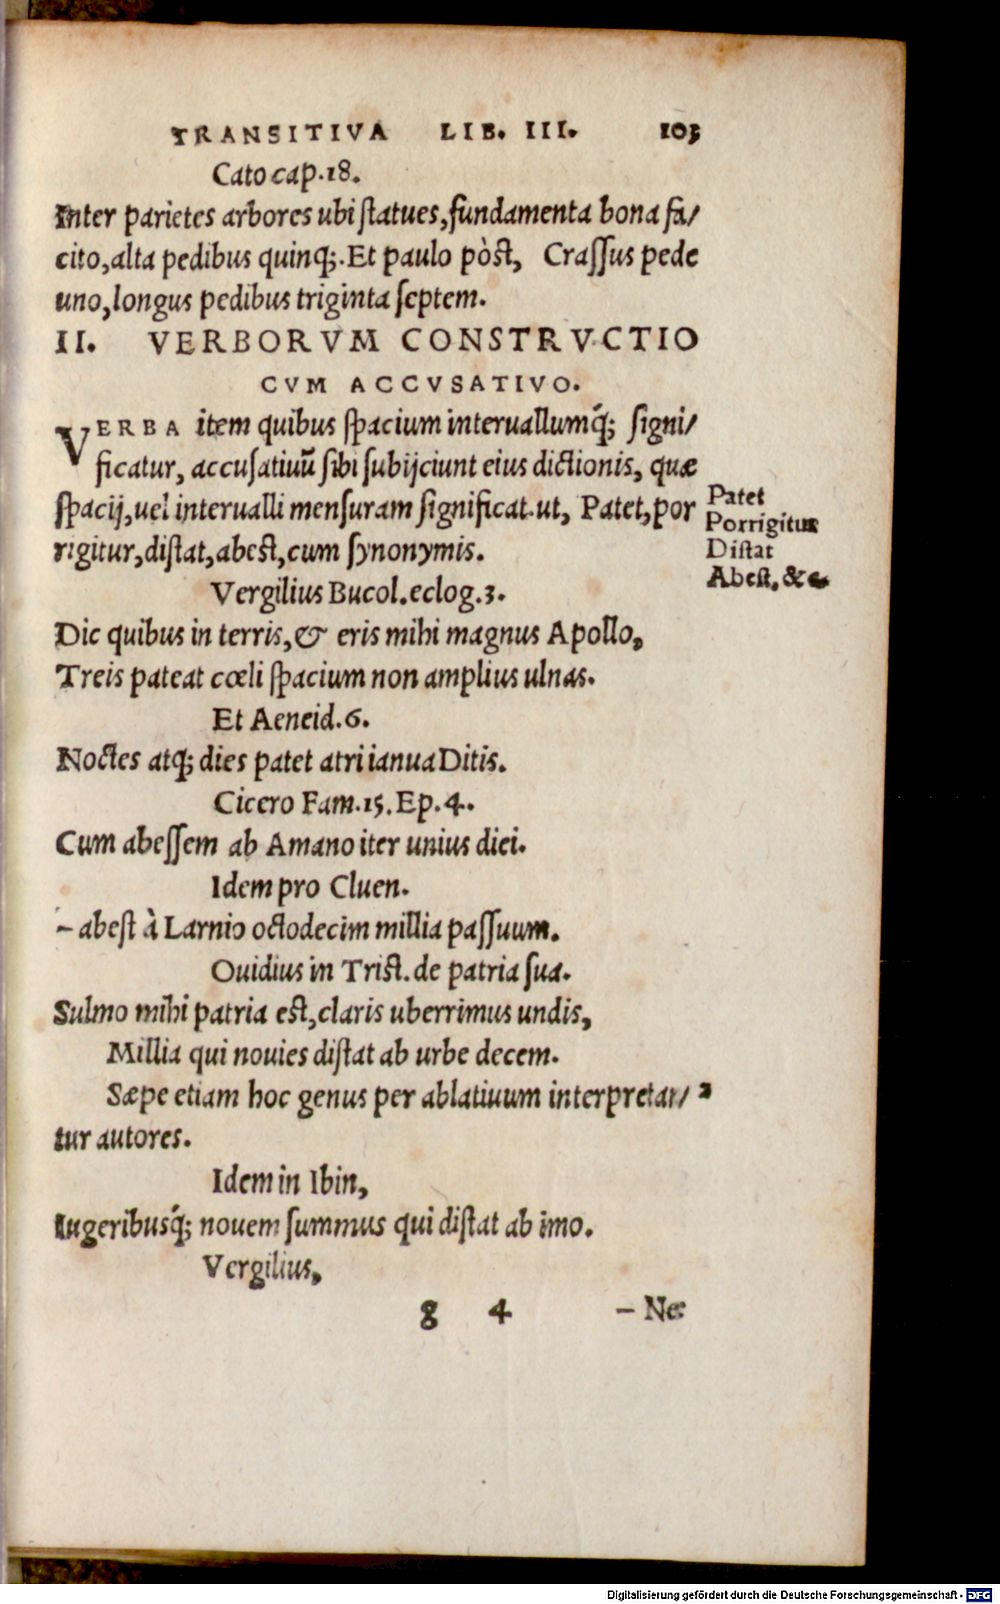 TRANSITIVA LIB. III. 103
Cato cap.18.
Inter parietes arbores ubi ſtatues,fundamenta bona fa/
cito,alta pedibus quinq;.Et paulo pòst, Craſſus pede
uno,longus pedibus triginta ſeptem.
II. VERBORVM CONSTRVCTIO
CVM ACCVSATIVO.
VERBA item quibus ſpacium interuallumq́; ſigni/
ficatur, accuſatiuũ ſibi ſubijciunt eius dictionis, quæ
ſpacij,uel interualli menſuram ſignificat.ut, Patet,por
rigitur,diſtat,abest,cum ſynonymis.
Patet
Porrigitur
Diſtat
Abeſt.&c.
Vergilius Bucol.eclog.3.
Dic quibus in terris,& eris mihi magnus Apollo,
Treis pateat cœli ſpacium non amplius ulnas.
Et Aeneid.6.
Noctes atq; dies patet atri ianua Ditis.
Cicero Fam.15.Ep.4.
Cum abeſſem ab Amano iter unius diei.
Idem pro Cluen.
– abeſt à Larnio octodecim millia paſſuum.
Ouidius in Trist.de patria ſua.
Sulmo mihi patria est,claris uberrimus undis,
Millia qui nouies diſtat ab urbe decem.
Sæpe etiam hoc genus per ablatiuum interpretan/ 2
tur autores.
Idem in Ibin,
Iugeribusq́; nouem ſummus qui diſtat ab imo.
Vergilius,
g 4 – Ne
Digitalisierung gefördert durch die Deutsche Forschungsgemeinschaft - DFG